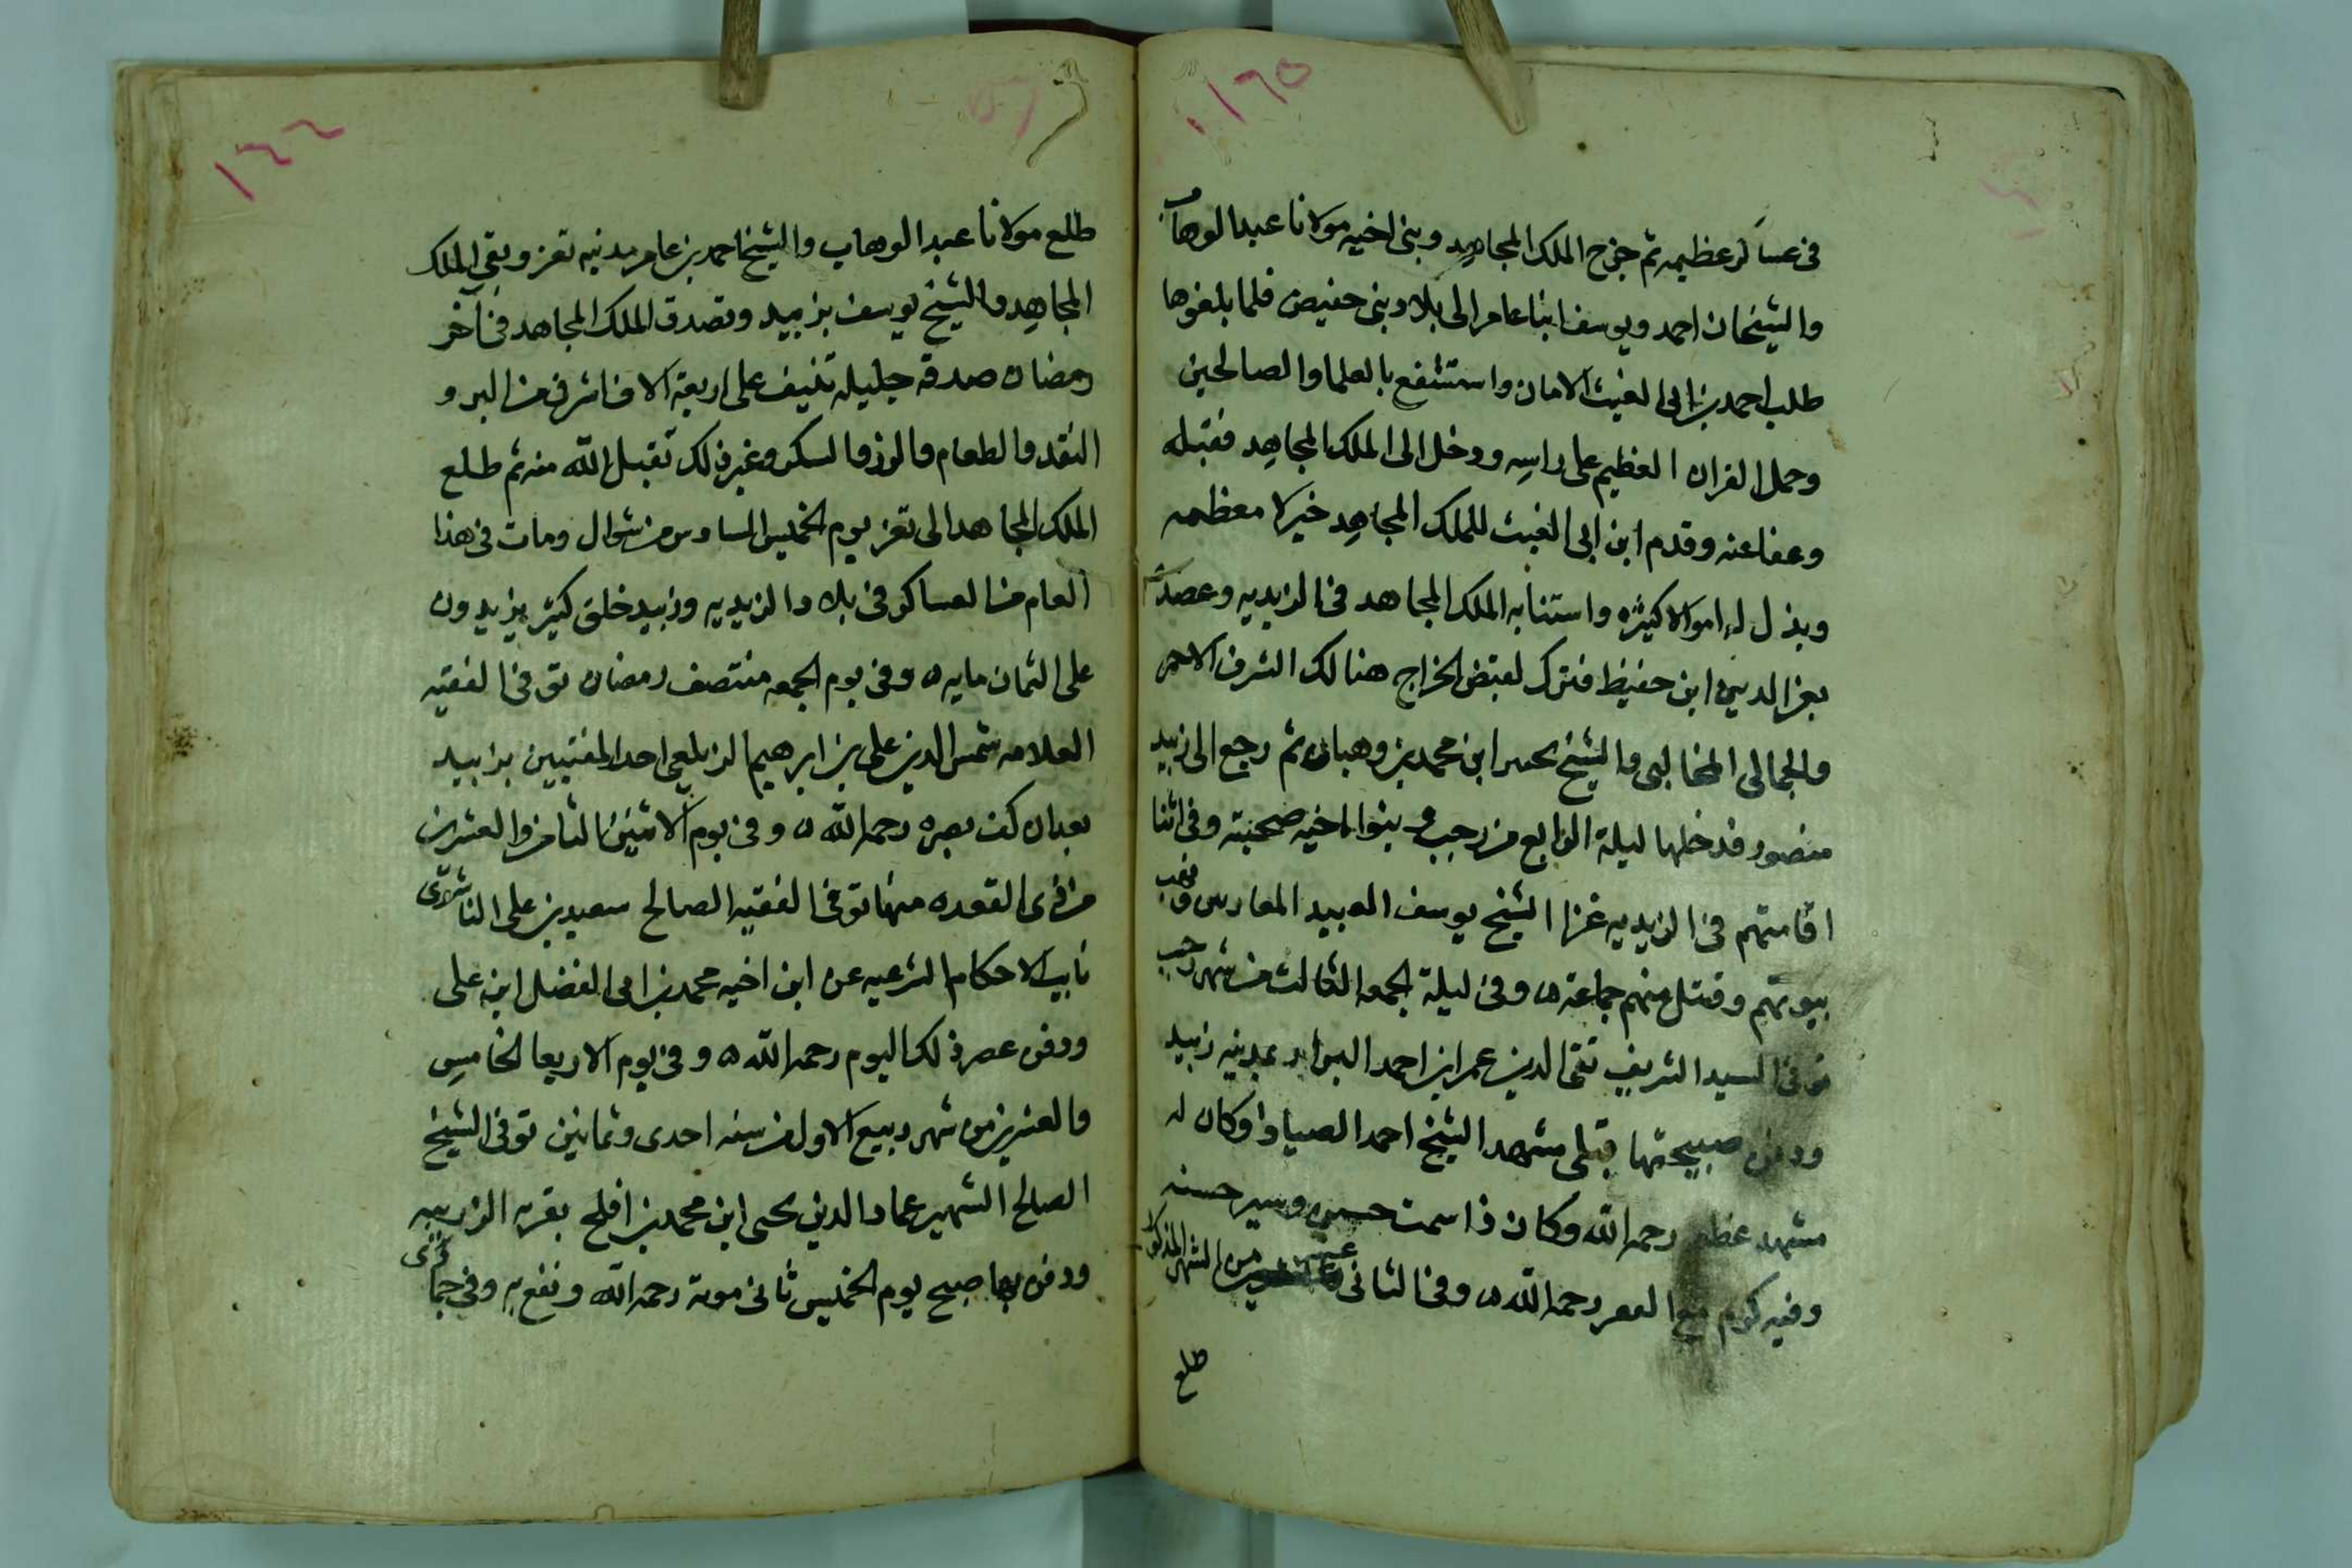 في عساكر عظيمه ثم خرج الملك المجاهد وبني اخيه مولانا عبد الوهاب
والشيخان احمد ويوسف ابنا عامر الى بلاد بني حفيص فلما بلغوها
طلب احمد بن ابي الغيث الامان واستشفع بالعلما والصالحين
وحمل القران العظيم على راسه ودخل الى الملك المجاهد فقبله
وعفا عنه وقدم ابن ابي الغيث للملك المجاهد خيلا معظمه
وبذل له اموالا كثيره واستنابه الملك المجاهد في الزيديه وعضده
بعز الدين ابن حفيظ فترك لقبض الخراج هنالك الشرف الاحمر
والجمالي المخالبي والشيخ يحيى ابن محمد بن وهبان ثم رجع الى زبيد
منصور فدخلها ليلة الرابع من رجب وبنوا اخيه صحبته وفي اثنا
اقامتهم في الزيديه غزا الشيخ يوسف العبيد المعارس فنهب
بيوتهم وقتل منهم جماعة ٥ وفي ليلة الجمعه الثالث من شهر رجب
توفي السيد الشريف تقي الدين عمر ابن احمد بمدينه زبيد
ودفن صبيحتها قبلي مشهد الشيخ احمد الصياد وكان له
مشهد عظيم رحمه الله وكان ذا سمت حسن وسير حسنه
وفيه كرم مع الفقر رحمه الله ٥ وفي الثاني عشر من الشهر المذكور
طلع
١٦٥
١٤٤
طلع مولانا عبد الوهاب والشيخ احمد بن عامر مدينه تعز وبقي الملك
المجاهد والشيخ يوسف بزبيد وتصدق الملك المجاهد في آخر
رمضان صدقه جليله تنيف على اربعة الاف اشرفي من البر و
النقد والطعام والرز والسكر وغير ذلك تقبل الله منه ثم طلع
الملك المجاهد الى تعز يوم الخميس السادس من شوال ومات في هذا
العام من العساكر في بلاد الزيديه وزبيد خلق كثير يزيدون
على الثمان مايه ٥ وفي يوم الجمعه منتصف رمضان توفي الفقيه
العلامه شمس الدين علي بن ابرهيم الزيلعي احد المفتيين بزبيد
بعد ان كف بصره رحمه الله ٥ وفي يوم الاثنين الثامن والعشرين
من ذي القعده منها توفي الفقيه الصالح سعيد بن علي الناشري
نايب الاحكام الشرعيه عن ابن اخيه محمد بن ابي الفضل ابن علي
ودفن عصر ذلك اليوم رحمه الله ٥ وفي يوم الاربعا الخامس
والعشرين من شهر ربيع الاول من سنه احدى وثمانين توفي الشيخ
الصالح الشهير عماد الدين يحيى ابن محمد بن افلح بقريه
ودفن بها صبح يوم الخميس ثاني موته رحمه الله ونفع به وفي جمادى